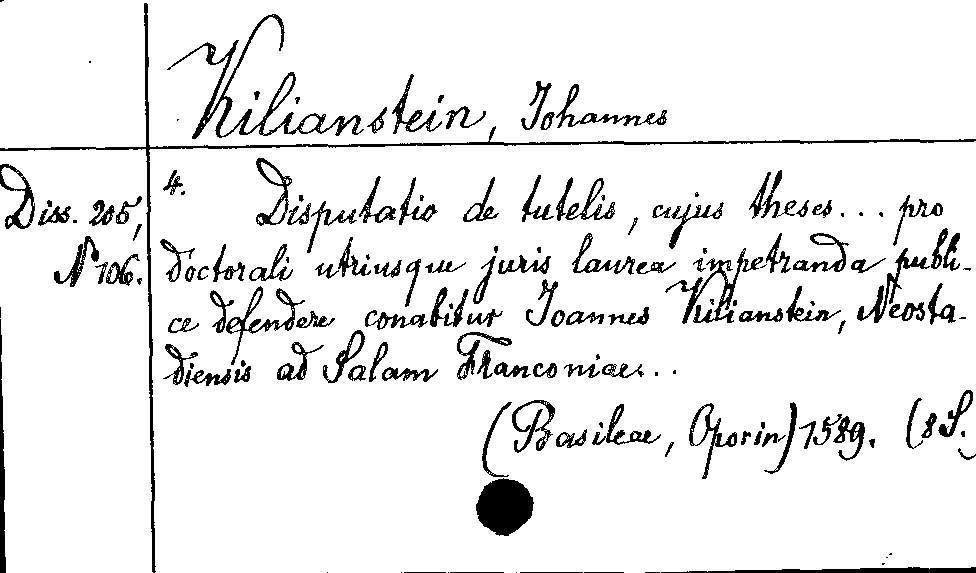 Kilianstein, Johannes
Diss. 205,
No 106.
4. Disputatio de tutelis, cujus theses... pro
doctorali utriusque juris laurea impetranda publi-
ce defendere conabitur Joannes Kilianstein, Neosta-
diensis ad Salam Franconiae...
(Basileae, Oporin) 1589. (8 S.)